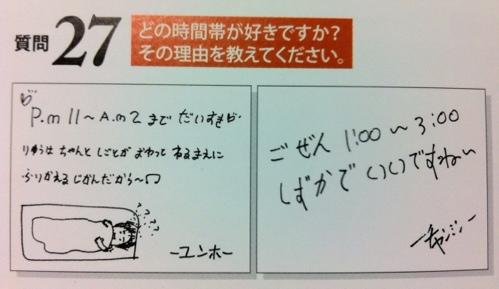 質問 27
どの時間帯が好きですか?
その理由を教えてください。
P.m 11～A.m 2 まで だいすき
りゆうは ちゃんと しごとが おわって ねるまえに
ふりかえる じかんだから～
????
ーユンホー
ごぜん 1:00～3:00
しずかで いいですねぃ
ーチャンミンー